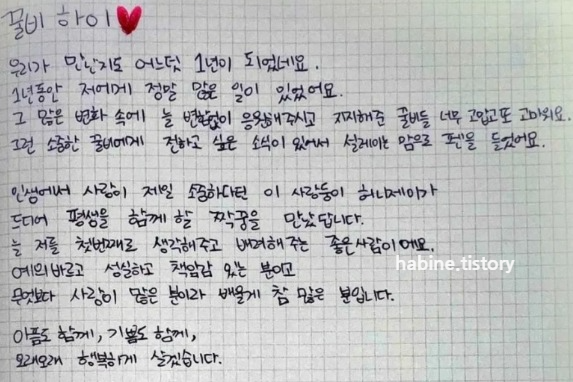 꿀비 하이
우리가 만난지도 어느덧 1년이 되었네요.
1년동안 저에게 정말 많은 일이 있었어요.
그 많은 변화 속에 늘 변함없이 응원해주시고 지지해준 꿀비들 너무 고맙고또 고마워요.
그런 소중한 꿀비에게 전하고 싶은 소식이 있어서 설레이는 맘으로 펜을 들었어요.
인생에서 사랑이 제일 소중하다던 이 사랑둥이 허니제이가
드디어 평생을 함께 할 짝꿍을 만났답니다.
늘 저를 첫번째로 생각해주고 배려해주는 좋은사람이에요.
habine.tistory
예의바르고 성실하고 책임감 있는 분이고
무엇보다 사랑이 많은 분이라 배울게 참 많은 분입니다.
아픔도 함께, 기쁨도 함께,
오래오래 행복하게 살겠습니다.